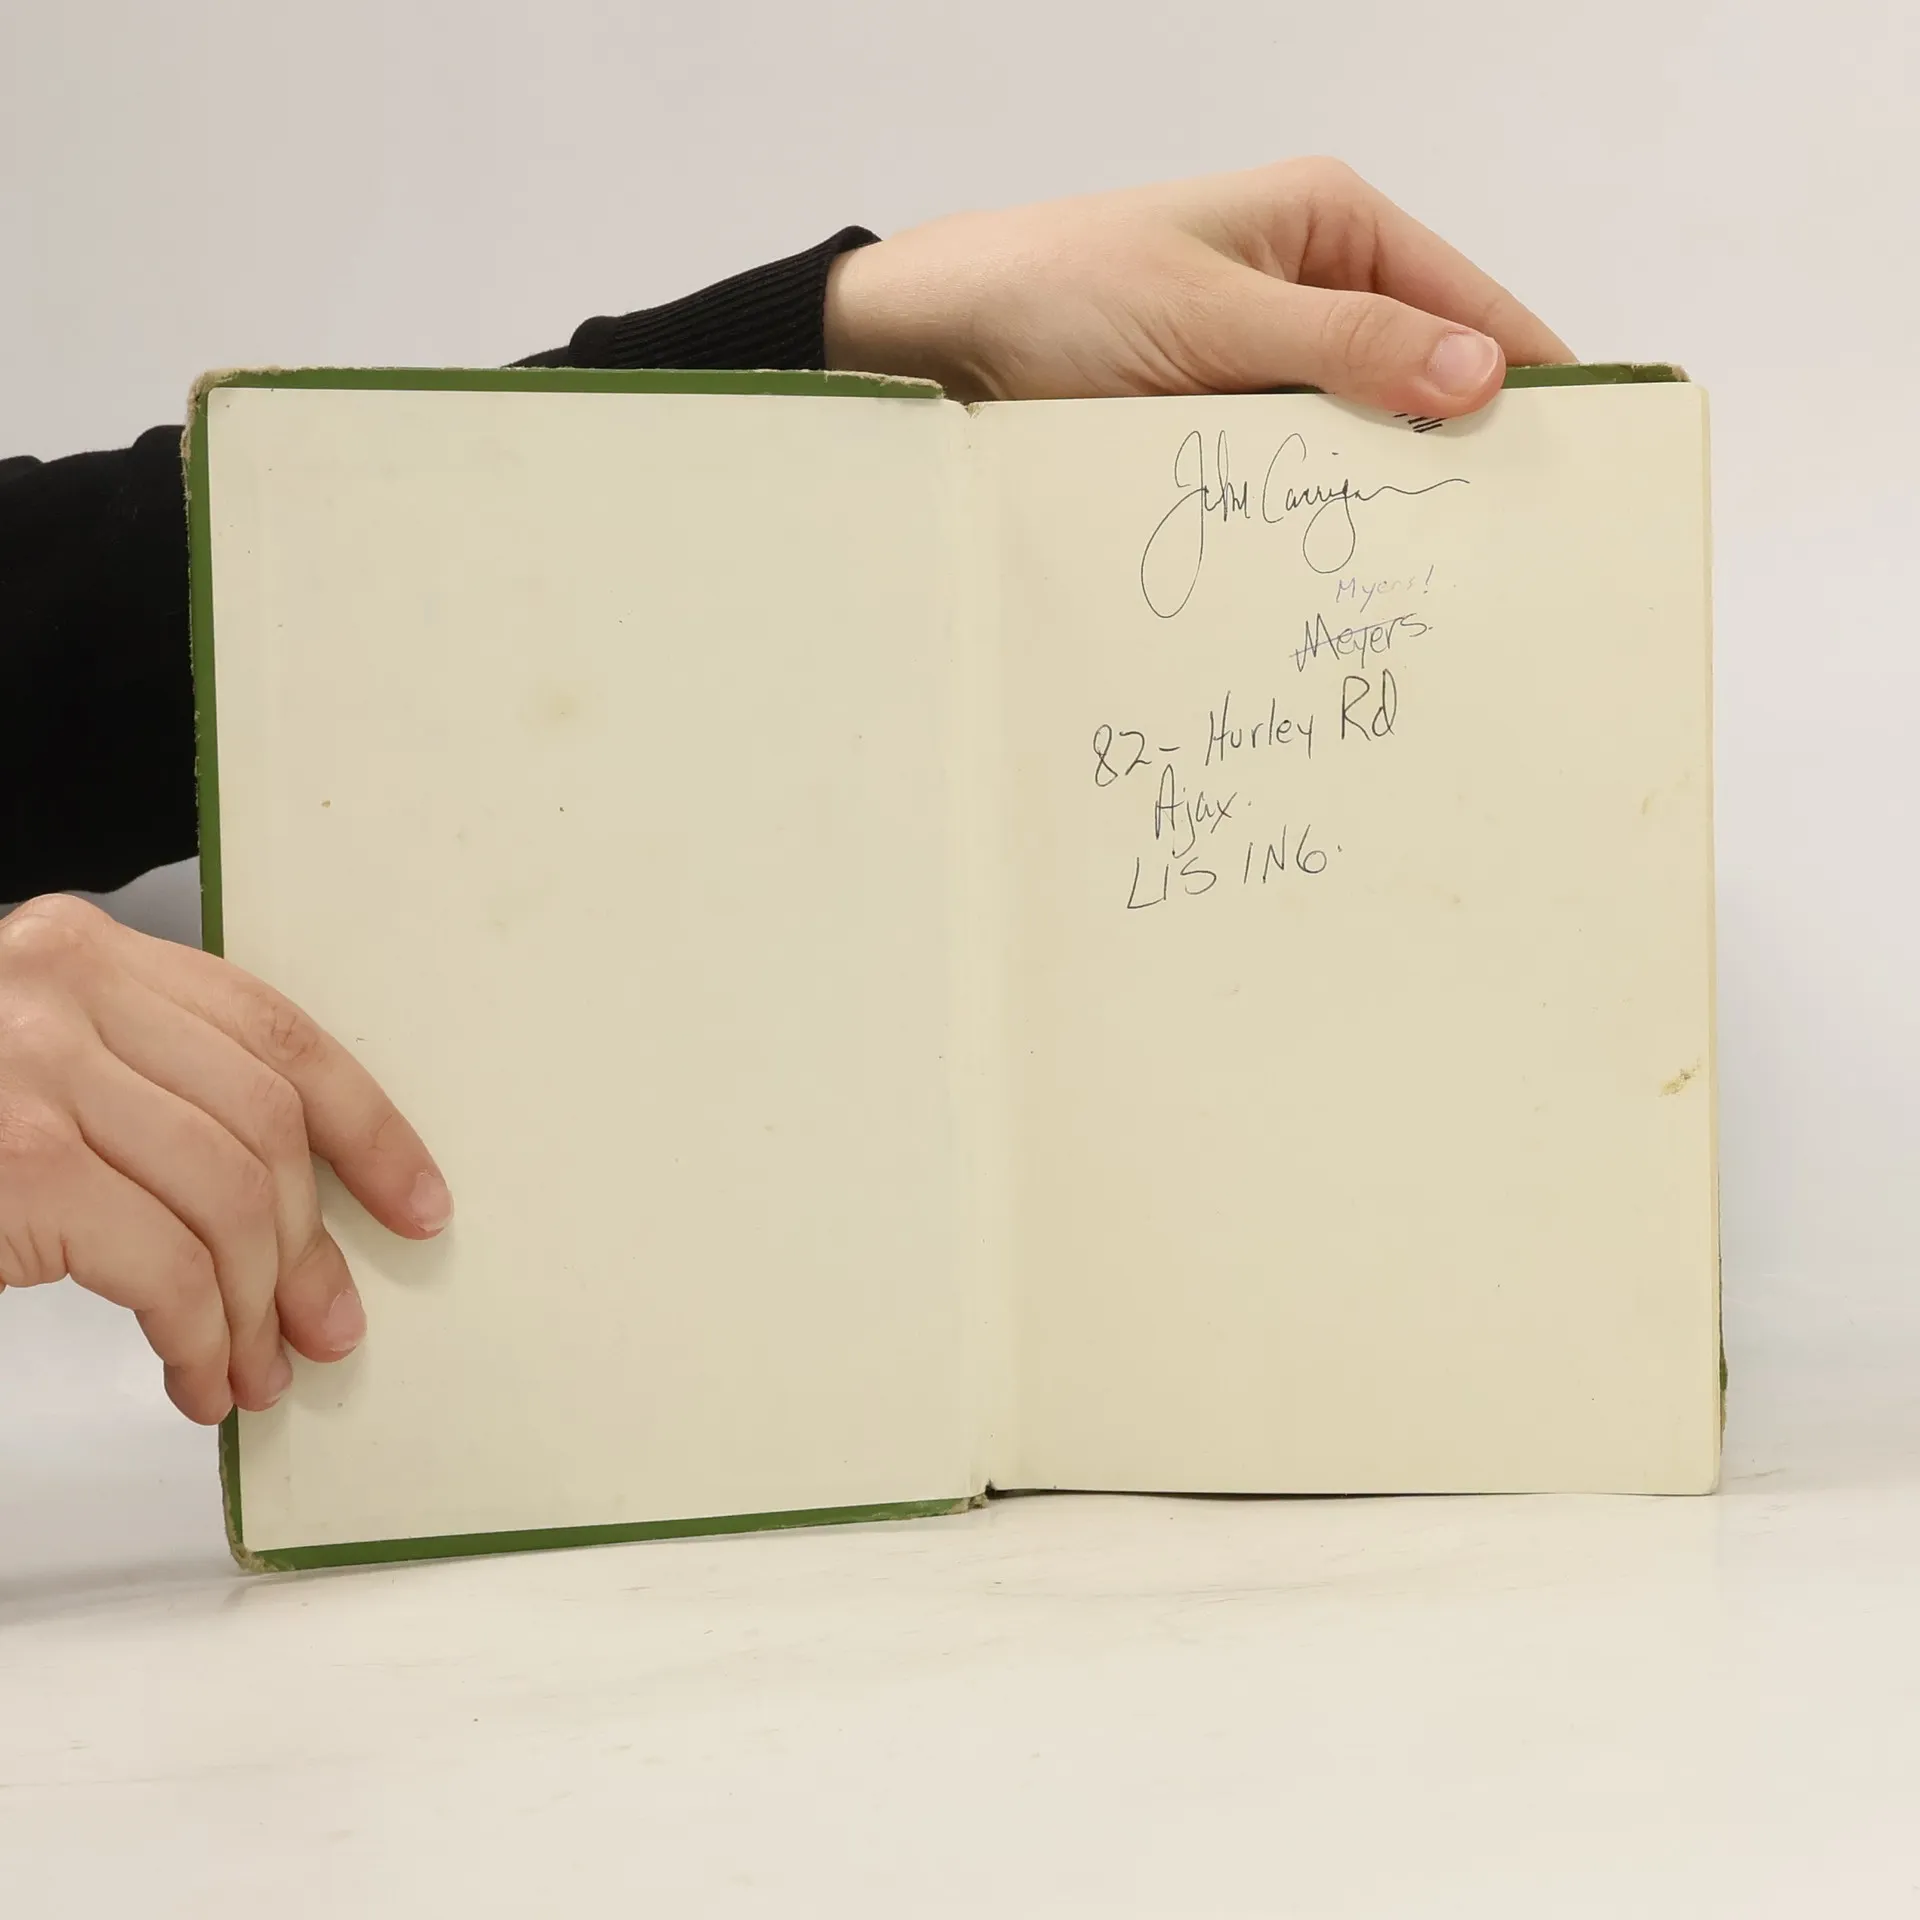 John Carrigan
Myers!
Meyers.
82- Hurley Rd
Ajax.
L1S 1N6.